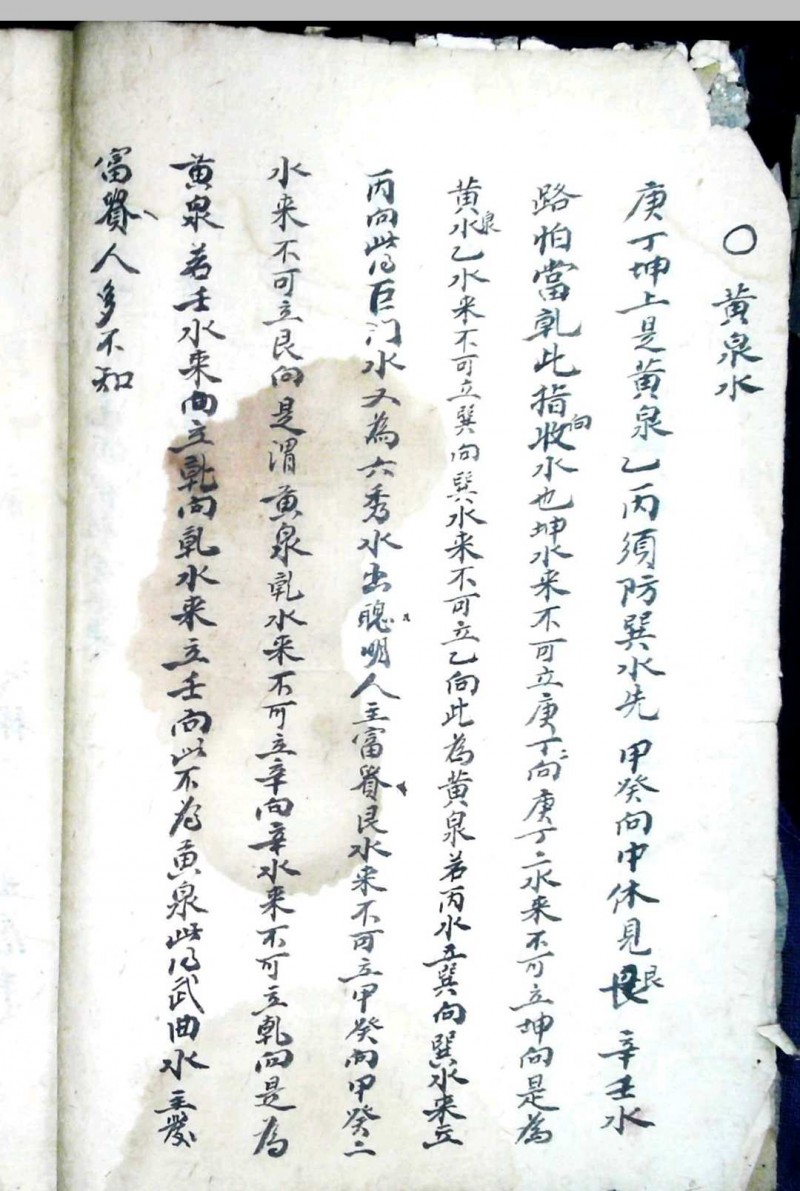 ○ 黃泉水
庚丁坤上是黃泉乙丙須防巽水先 甲癸向中休見艮 辛壬水
路怕當乹此指收向水也坤水来不可立庚丁向庚丁二水来不可立坤向是為
黃泉水乙水来不可立巽向巽水来不可立乙向此為黃泉若丙水立巽向巽水来立
丙向此乃巨门水又為六秀水出聰明人主富貴艮水来不可立甲癸向甲癸二
水来不可立艮向是謂黃泉乹水来不可立辛向辛水来不可立乹向是為
黃泉若壬水来向立乹向乹水来立壬向此不為黃泉此乃武曲水主發
富貴人多不知